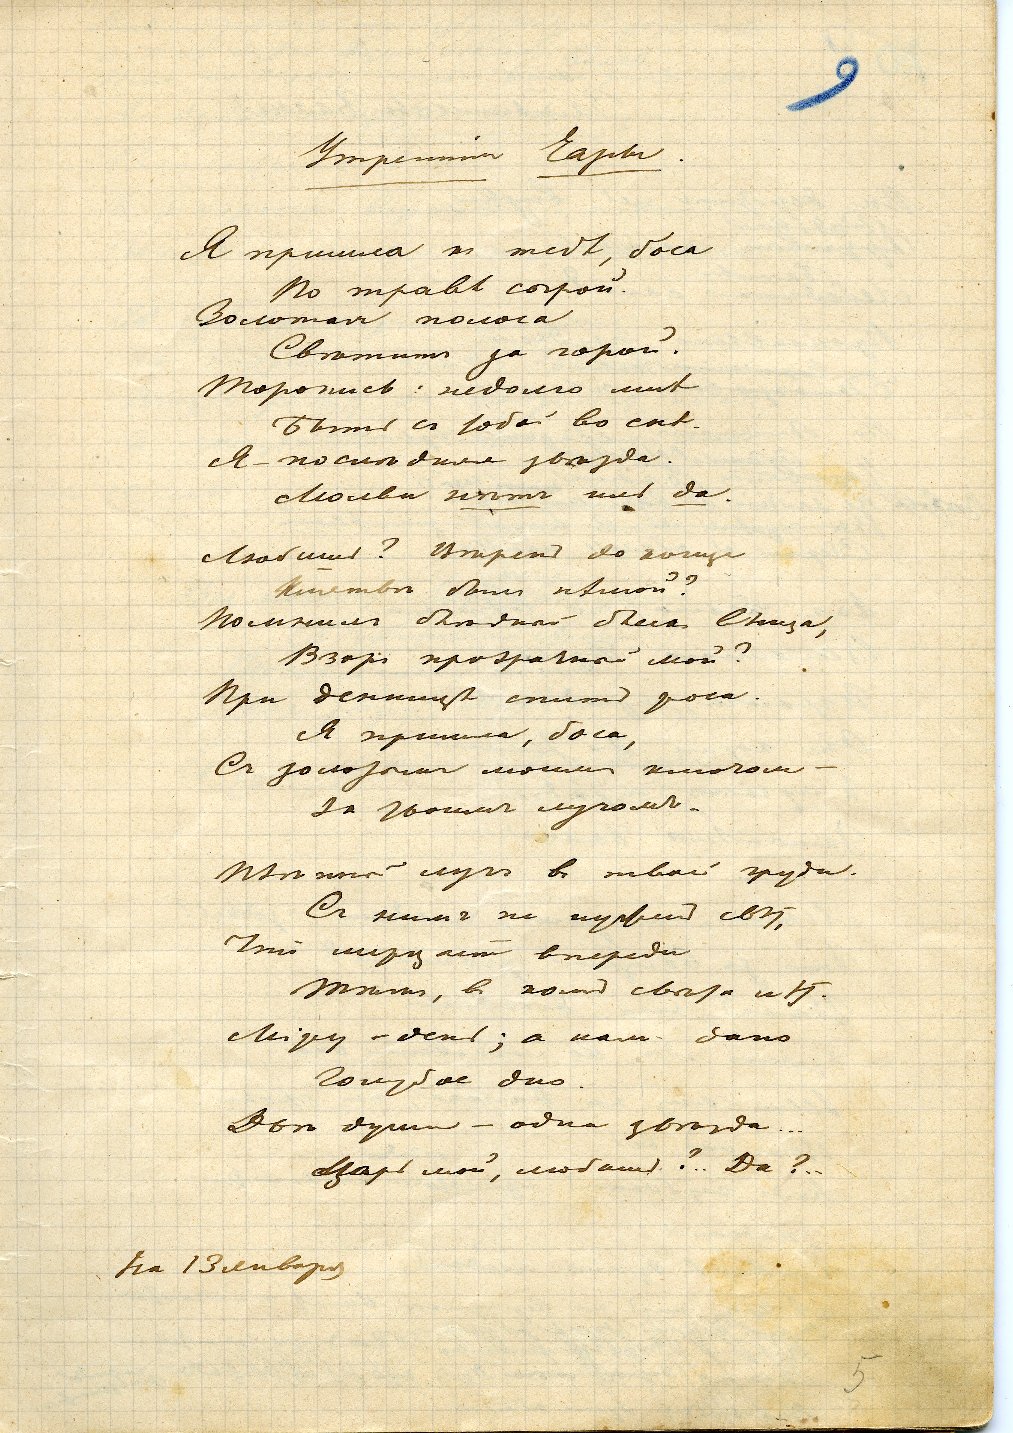 9
Утреннiя Чары.
Я пришла къ тебѣ, боса
По травѣ сырой.
Золотая полоса
Свѣтитъ за горой.
Торопись: недолго мнѣ
Быть съ тобой во снѣ.
Я – послѣдняя звѣзда.
Молви нѣтъ иль да.
Любишь? до конца
былъ нѣмой?
Помнилъ блѣдной вѣнца,
Взоръ прозрачный мой?
При денницѣ спитъ роса.
Я пришла, боса,
Съ золотымъ моимъ ключомъ –
За твоимъ лучомъ.
лучъ въ твоей груди.
Съ нимъ не нуженъ свѣтъ,
Что мерцаетъ впереди
въ коей свѣта нѣтъ.
Мiру – день; а намъ дано
Голубое дно.
Двѣ души – одна звѣзда...
Царь мой, любишь?.. Да?..
На 13 января
5